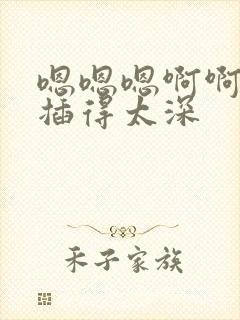 嗯嗯嗯啊啊
插得太深
禾子家族